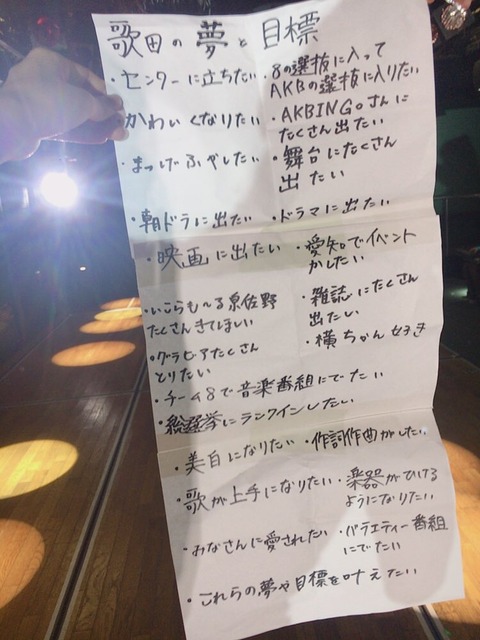 歌田の夢と目標
・センターに立ちたい
・8の選抜に入って
AKBの選抜に入りたい
・かわいくなりたい
・AKBINGOさんに
たくさん出たい
・まつげふやしたい
・舞台にたくさん
出たい
・朝ドラに出たい
・ドラマに出たい
・映画に出たい
・愛知でイベント
かしたい
・いこらも〜る泉佐野
たくさんきてほしい
・雑誌にたくさん
出たい
・グラビアたくさん
とりたい
・横ちゃん好き
・チーム8で音楽番組にでたい
・総選挙にランクインしたい
・美白になりたい
・作詞作曲がしたい
・歌が上手になりたい
・楽器がひける
ようになりたい
・みなさんに愛されたい
・バラエティー番組
にでたい
・これらの夢や目標を叶えたい